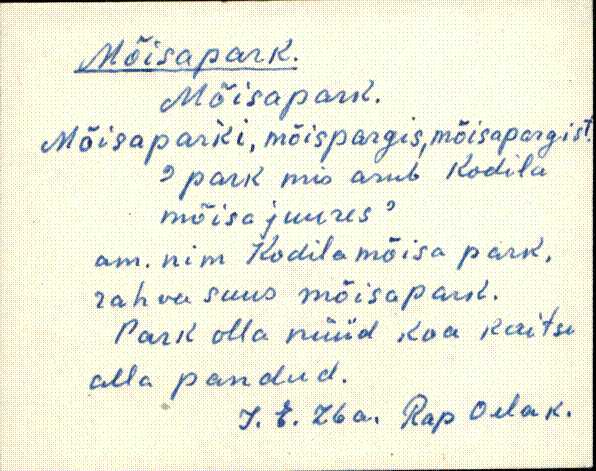 Mõisapark.
Mõisapark.
Mõisaparki, mõispargis, mõisapargist.
? park mis asub Kodila
mõisa juures ?
am. nim Kodila mõisa park,
rahva suus mõisapark.
Park olla nüüd koa kaitse
alla pandud.
J. E. 26a. Rap